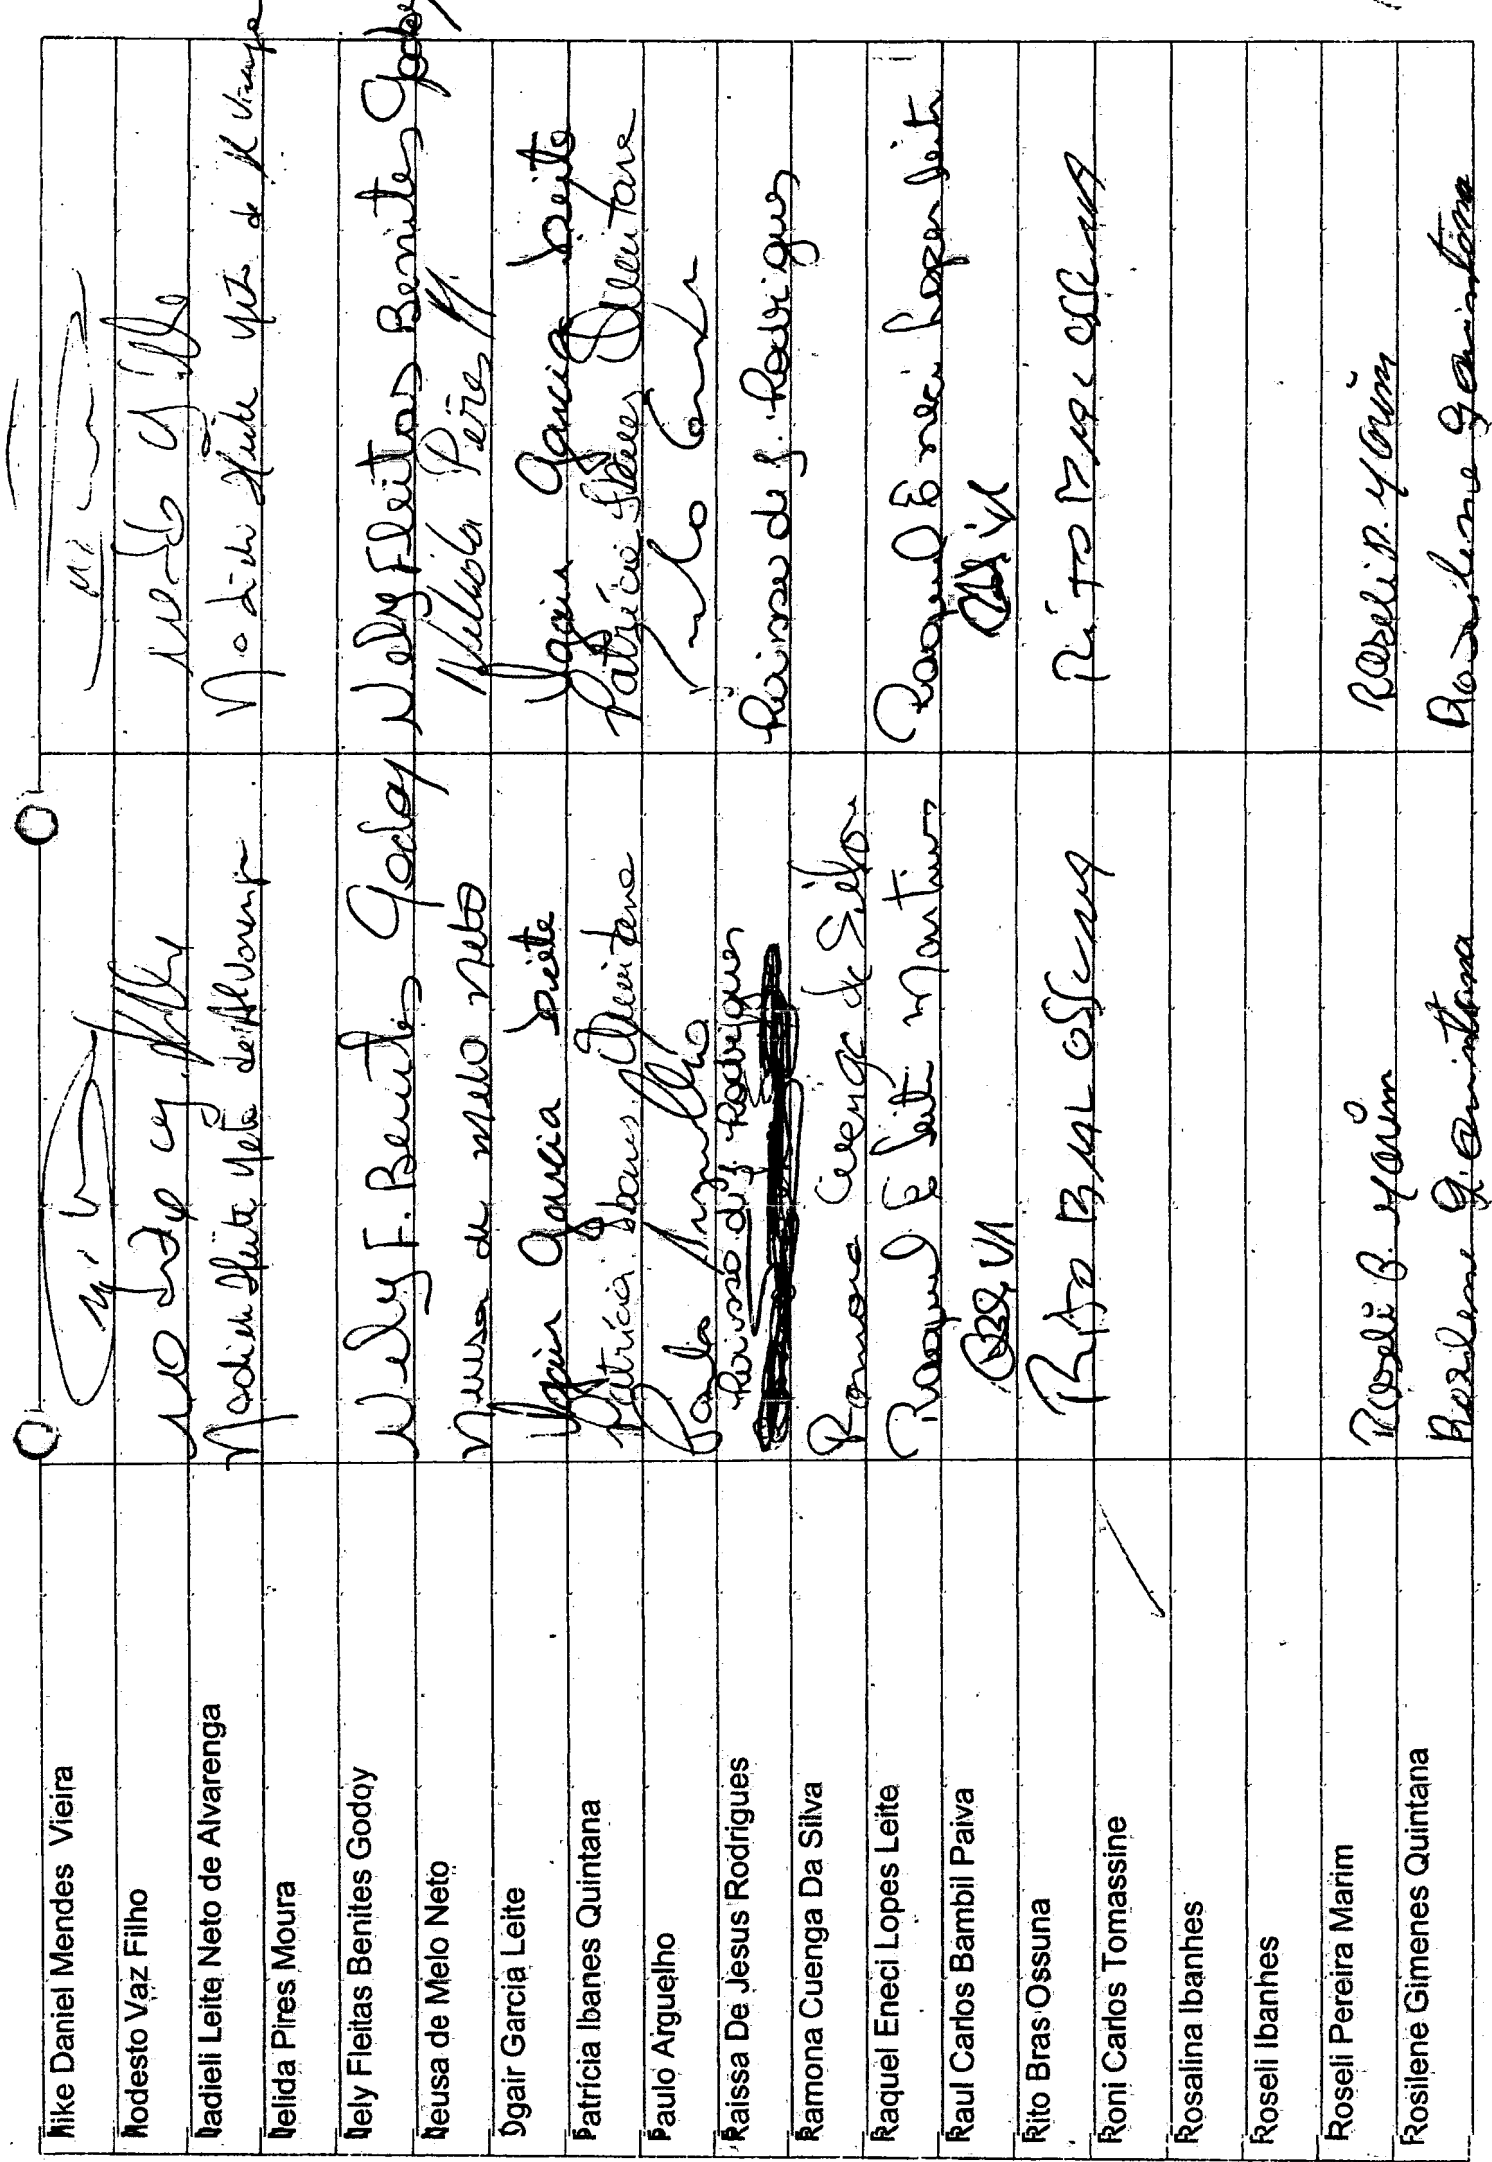 Mike Daniel Mendes Vieira
Modesto Vaz Filho
Nadieli Leite Neto de Alvarenga Nadieli Leite Neto de Alvarenga
Nelida Pires Moura
Nely Fleitas Benites Godoy Nely F. Benites Godoy Nely Fleitas Benites Godoy
Neusa de Melo Neto Neusa de Melo Neto
Ogair Garcia Leite Ogair Garcia Leite Ogair Garcia Leite
Patrícia Ibanes Quintana Patrícia Ibanes Quintana Patrícia Ibanes Quintana
Paulo Arguelho Paulo Arguelho
Raissa De Jesus Rodrigues Raissa de J. Rodrigues Raissa de J. Rodrigues
Ramona Cuenga Da Silva Ramona Cuenga da Silva
Raquel Eneci Lopes Leite Raquel E Leite Martins Raquel Eneci Lopes Leite
Raul Carlos Bambil Paiva
Rito Bras Ossuna Rito Bras Ossuna Rito Bras Ossuna
Roni Carlos Tomassine
Rosalina Ibanhes
Roseli Ibanhes
Roseli Pereira Marim Roseli P. Marim Roseli P. Marim
Rosilene Gimenes Quintana Rosilene G. Quintana Rosilene Quintana